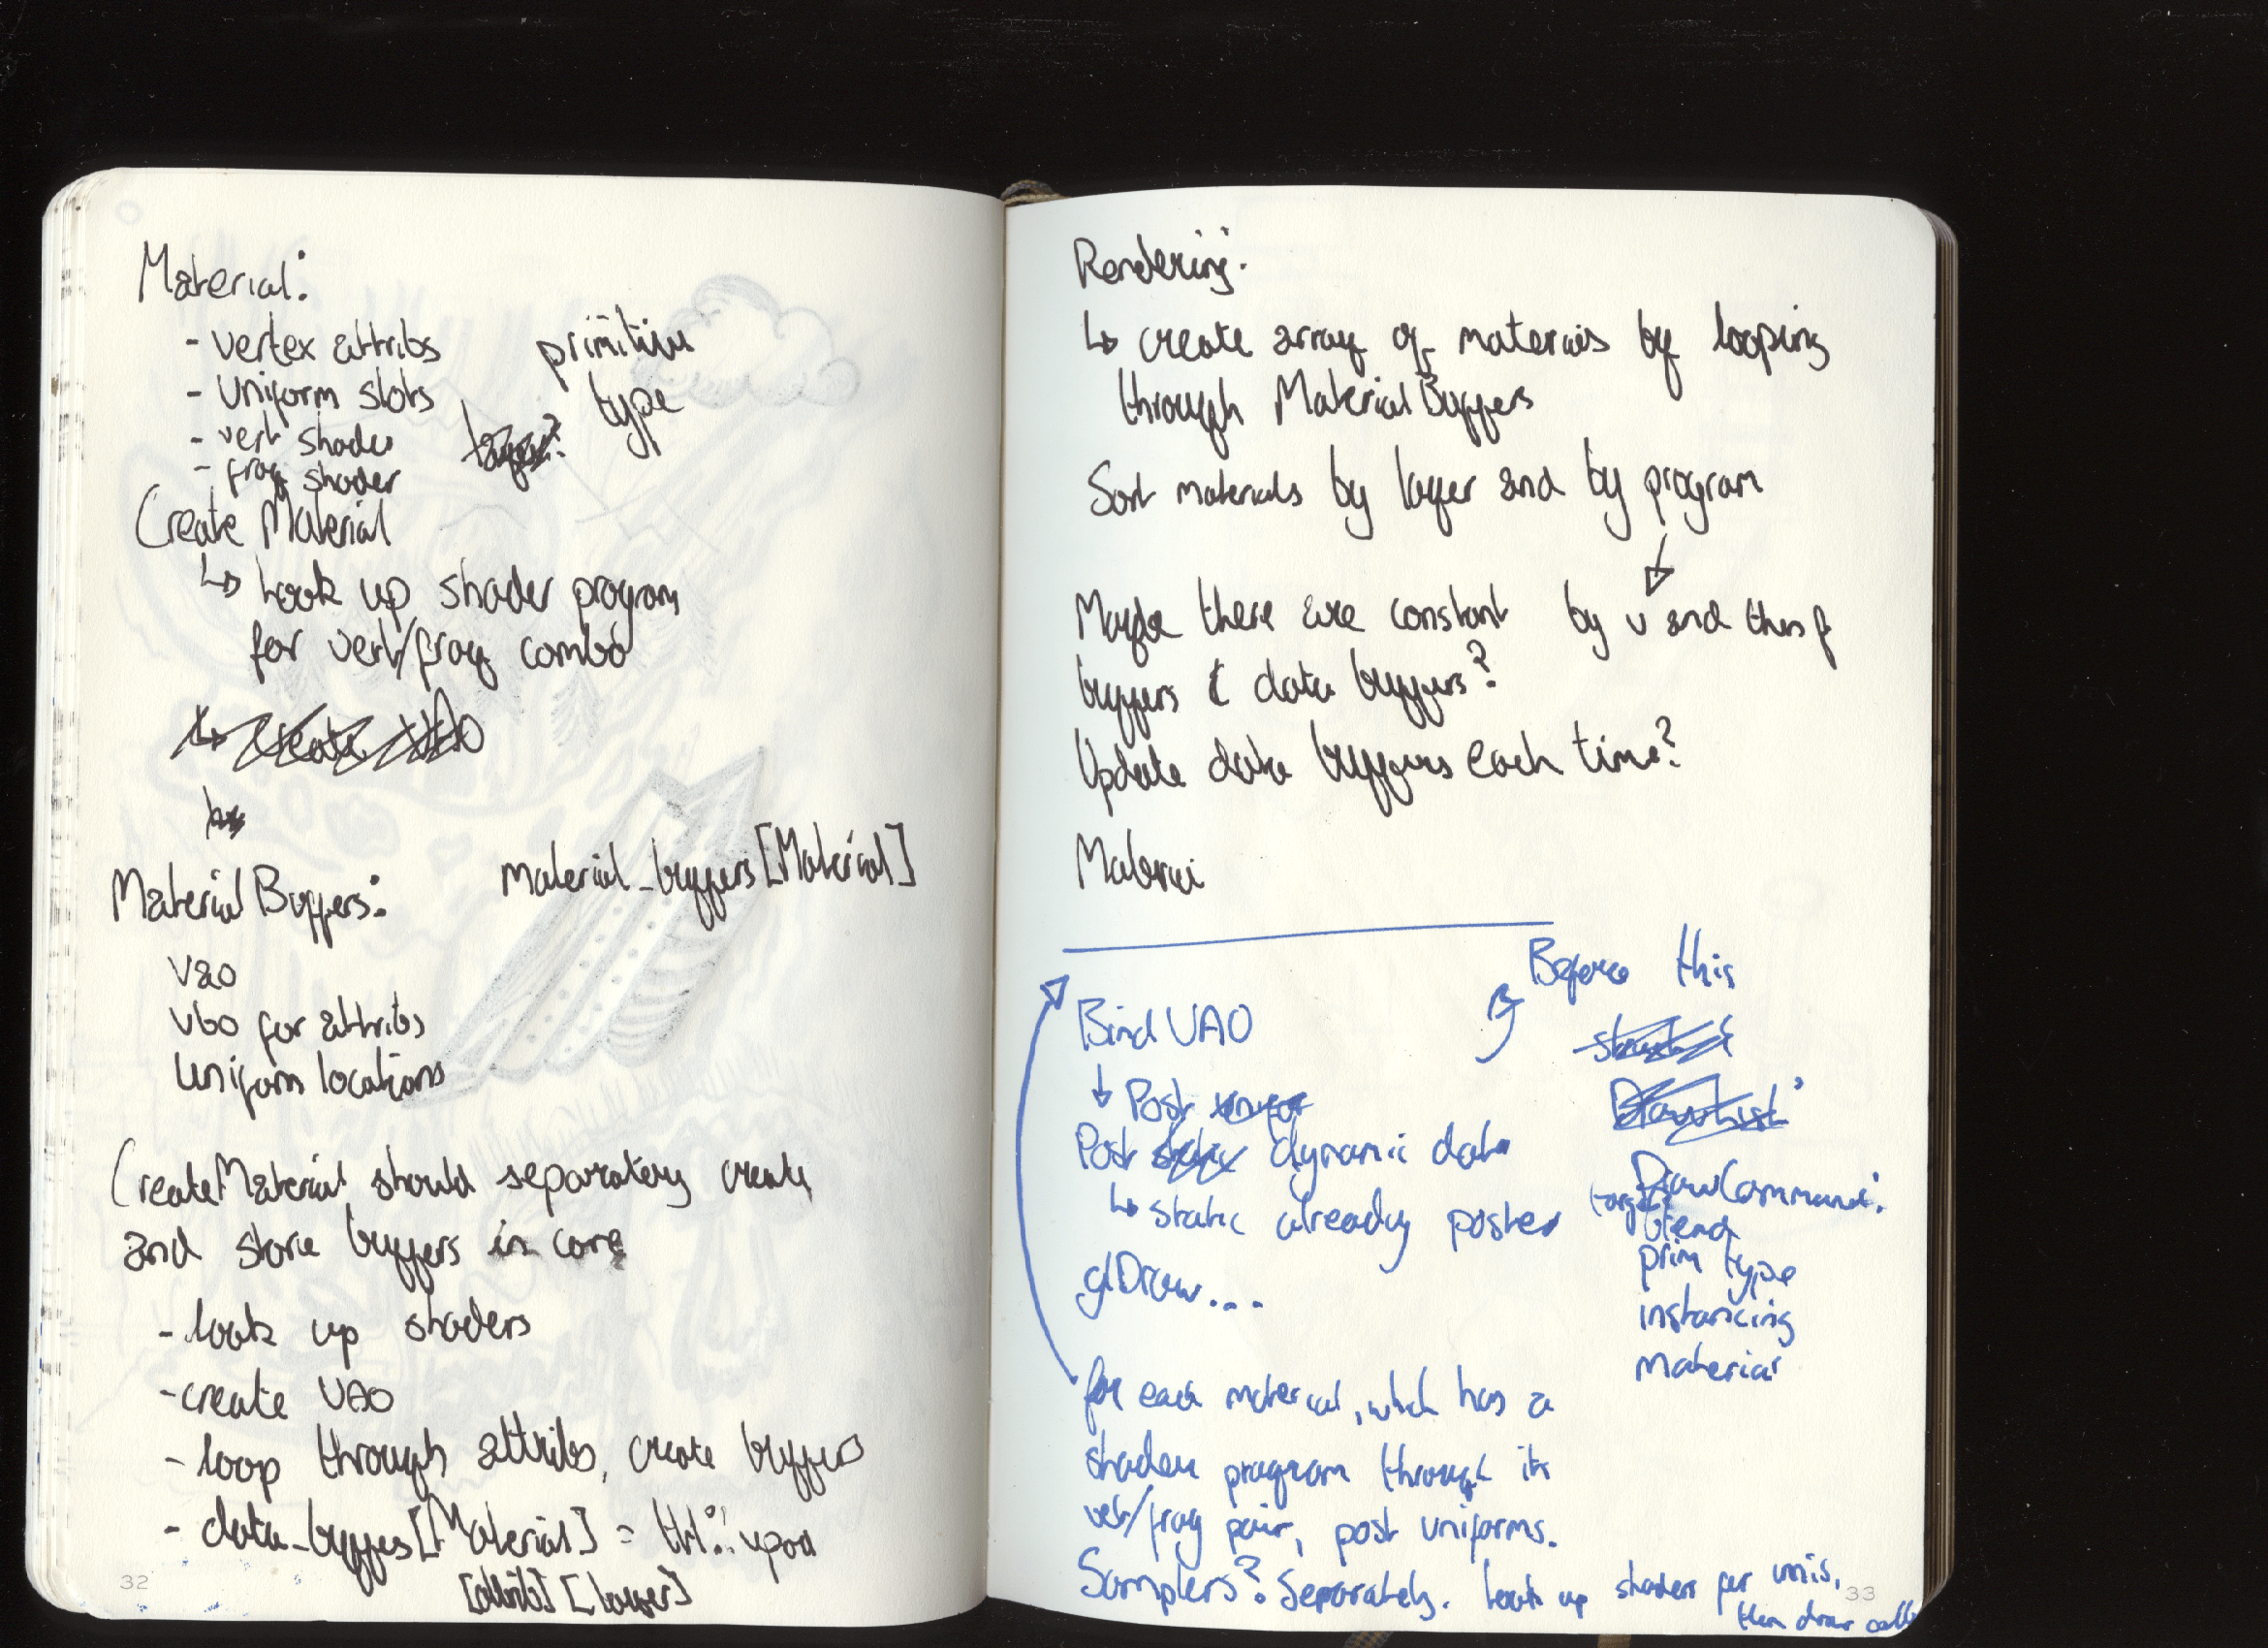 Material:
- vertex attribs
- Uniform slots
- vert shader
- frag shader
primitive
type
Create Material
↳ Look up shader program
for vert/frag combo
↳ Create VAO
MaterialBuffers:
material_buffers[Material]
vao
vbo for attribs
Uniform locations
CreateMaterial should separately create
and store buffers in core
- look up shaders
- create VAO
- loop through attribs, create buffers
- data_buffers[Material] =
[attrib][layer]
32
Rendering:
↳ create array of materials by looping
through MaterialBuffers
Sort materials by layer and by program
↓
by v and then f
Maybe there are constant
buffers & data buffers?
Update data buffers each time?
Materi
Before this
struct
DrawList:
DrawCommand:
target
blend
prim type
instancing
material
Bind VAO
↓ Post
Post static dynamic data
↳ static already posted
glDraw...
for each material, which has a
shader program through its
vert/frag pair, post uniforms.
Samplers? Separately. Look up shaders per unis,
then draw calls
33